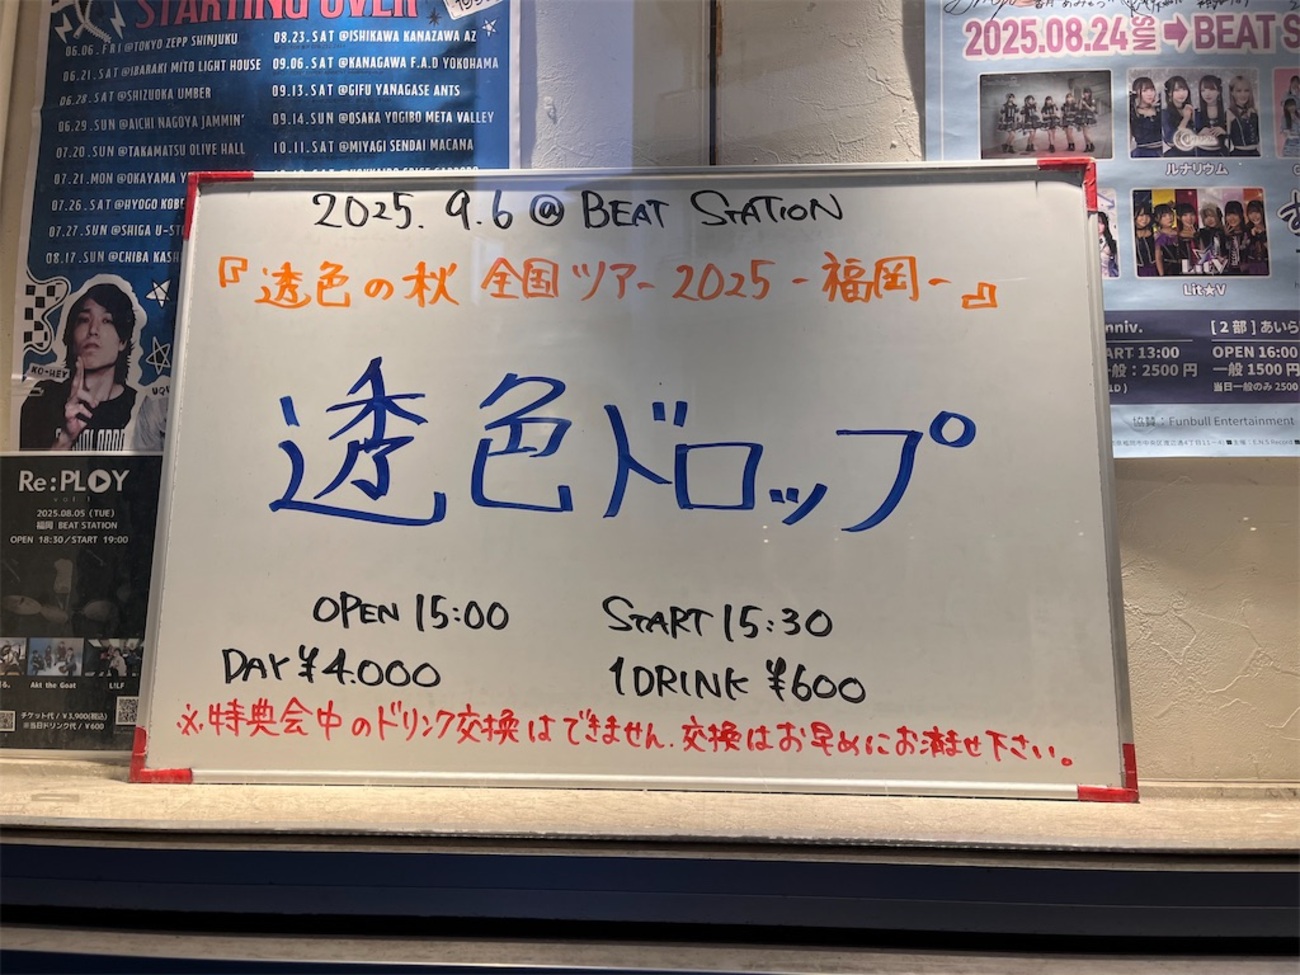 STARTING OVER
06.06.FRI@TOKYO ZEPP SHINJUKU
06.21.SAT@IBARAKI MITO LIGHT HOUSE
06.28.SAT@SHIZUOKA UMBER
06.29.SUN@AICHI NAGOYA JAMMIN'
07.20.SUN@TAKAMATSU OLIVE HALL
07.21.MON@OKAYAMA
07.26.SAT@HYOGO KOBE
07.27.SUN@SHIGA
08.17.SUN@CHIBA
08.23.SAT@ISHIKAWA KANAZAWA AZ
09.06.SAT@KANAGAWA F.A.D YOKOHAMA
09.13.SAT@GIFU YANAGASE ANTS
09.14.SUN@OSAKA YOGIBO META VALLEY
10.11.SAT@MIYAGI SENDAI MACANA
KO-HEY
2025.08.24 SUN ➡BEAT S
ルナリウム
Lit★V
Lit★V
nniv.
ART 13:00
般：2500円
[2部]あいら
OPEN 16:00
一般 1500円
当日一般のみ 2500
協賛：Funbull Entertainment
2025.9.6@BEAT STATION
『透色の秋 全国ツアー2025-福岡-』
透色ドロップ
OPEN 15:00 START 15:30
DAY ¥4.000 1DRINK ¥600
※特典会中のドリンク交換はできません.交換はお早めにお済ませ下さい。
Re:PLAY
vol.1
2025.08.05 (TUE)
福岡 BEAT STATION
OPEN 18:30/START 19:00
Akt the Goat
L!LF
チケット代 / ¥3,900(税込)
※当日ドリンク代 / ¥600